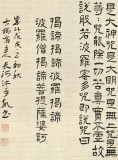 是大神咒是大明咒是無上咒是無
等=咒能除一切苦真實不虛故
說般若波羅蜜多咒即說咒曰
揭諦揭諦 波羅揭諦
波羅僧揭諦 菩提薩婆訶